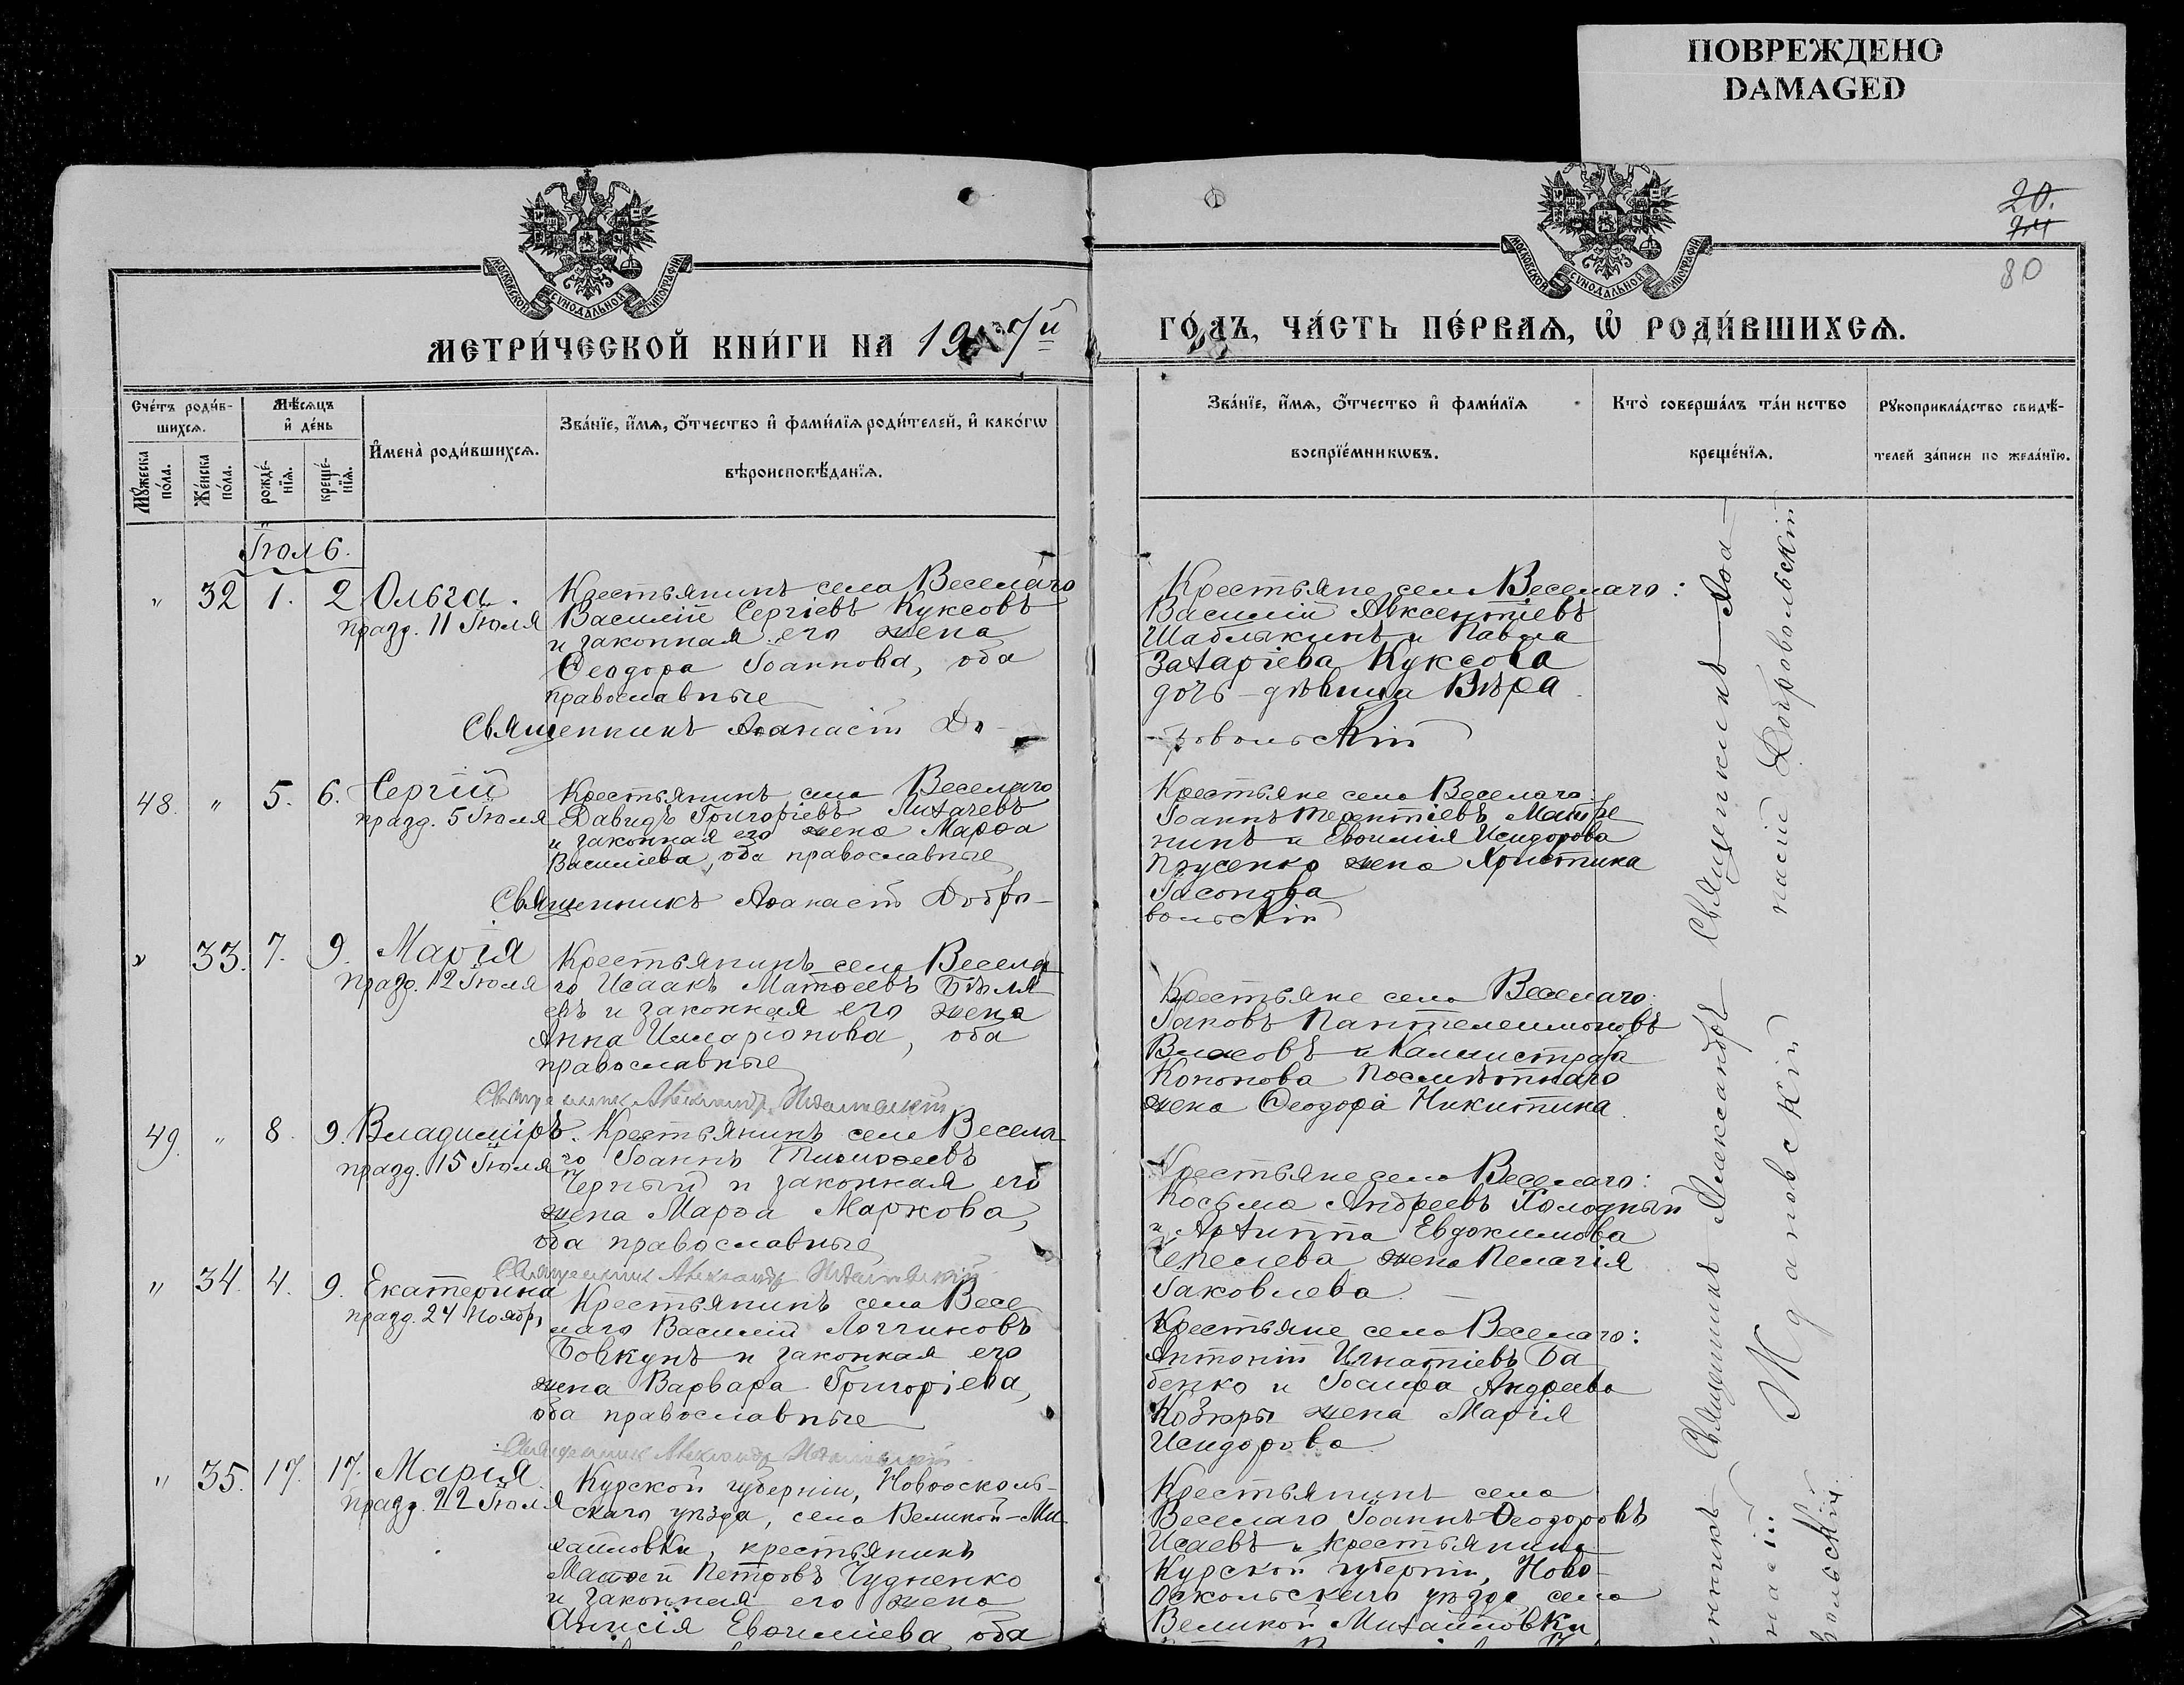 ПОВРЕЖДЕНО
DAMAGED
МОСКОВСКОЙ СѴНОДАЛЬНОЙ ТИПОГРАФІИ
МОСКОВСКОЙ СѴНОДАЛЬНОЙ ТИПОГРАФІИ
20.
74
80
МЕТРИ́ЧЕСКОЙ КНИ́ГИ НА 19 7й
ГО́ДЪ, ЧА́СТЬ ПЕ́РВАѦ, Ѡ҆ РОДИ́ВШИХСѦ.
Сче́тъ роди́в-
шихсѧ.
Мѣсѧцъ
и҆ де́нь
Мꙋ́жеска по́ла.
Же́нска по́ла.
рожде́-
нїѧ.
креще́-
нїѧ.
И҆мена̀ роди́вшихсѧ.
Зва́нїе, и҆́мѧ, ѻ҆́тчество и҆ фами́лїѧ роди́телей, и҆ како́гѡ
вѣроисповѣ́данїѧ.
Зва́нїе, и҆́мѧ, ѻ҆́тчество и҆ фами́лїѧ
воспрїе́мникѡвъ.
Кто̀ соверша́лъ та́инство
креще́нїѧ.
Рꙋкоприкла́дство свидѣ́-
телей за́писи по жела́нїю.
Іюль.
" 32 1. 2 Ольга.
празд. 11 Іюля
Крестьянинъ села Веселаго
Василій Сергіевъ Куксовъ
и законная его жена
Ѳеодора Іоаннова, оба
православные
Крестьяне села Веселаго:
Василій Авксентіевъ
Шаблыкинъ и Павла
Захаріева Куксова
дочь – дѣвица Вѣра.
Священникъ Аѳанасій До-
бровольскій
48. " 5. 6. Сергій
празд. 5 Іюля
Крестьянинъ села Веселаго
Давидъ Григоріевъ Лихачевъ
и законная его жена Марѳа
Василіева, оба православные
Крестьяне села Веселаго:
Іоаннъ Терентіевъ
и Евѳимія Исидорова
жена Христина
Іасонова
Священникъ Аѳанасій Добро-
вольскій
" 33. 7. 9. Марія
празд. 12 Іюля
Крестьянинъ села Весела
го Исаакъ Матѳеевъ Бѣля
евъ и законная его жена
Анна Иларіонова, оба
православные
Крестьяне села Веселаго:
Іаковъ Пантелеимоновъ
Власовъ и Каллистрата
Кононова
жена Ѳеодора Никитина.
Священникъ Александръ Ждановскій
49. " 8. 9. Владиміръ.
празд. 15 Іюля
Крестьянинъ села Весела
го Іоаннъ Тимоѳеевъ
Черный и законная его
жена Марѳа Маркова,
оба православные
Крестьяне села Веселаго:
Косьма Андреевъ Холодный
и Архиппа Евдокимова
Чепелева жена Пелагія
Іаковлева.
Священникъ Александръ Ждановскій
" 34. 4. 9. Екатерина
празд. 24 Ноябр.
Крестьянинъ села Весе
лаго Василій Логгиновъ
Бовкунъ и законная его
жена Варвара Григоріева,
оба православные
Крестьяне села Веселаго:
Антоній Игнатіевъ Ба
бенко и Іосифа Андреева
Козюры жена Марія
Исидорова.
Священникъ Александръ Ждановскій
" 35. 17. 17. Марія
празд. 22 Іюля
Курской губерніи, Новооскольс-
каго уѣзда, села Великой-Ми
хайловки, крестьянинъ
Матѳей Петровъ Чудненко
и законная его жена
Анисія Евѳиміева оба
Крестьянинъ села
Веселаго Іоаннъ Ѳеодоровъ
Исаевъ и крестьянина
Курской губерніи, Ново-
оскольскаго уѣзда села
Великой Михайловки
Священникъ Аѳа-
насій Добровольскій
Священникъ Александръ
Ждановскій
нникъ
насій
вольскій